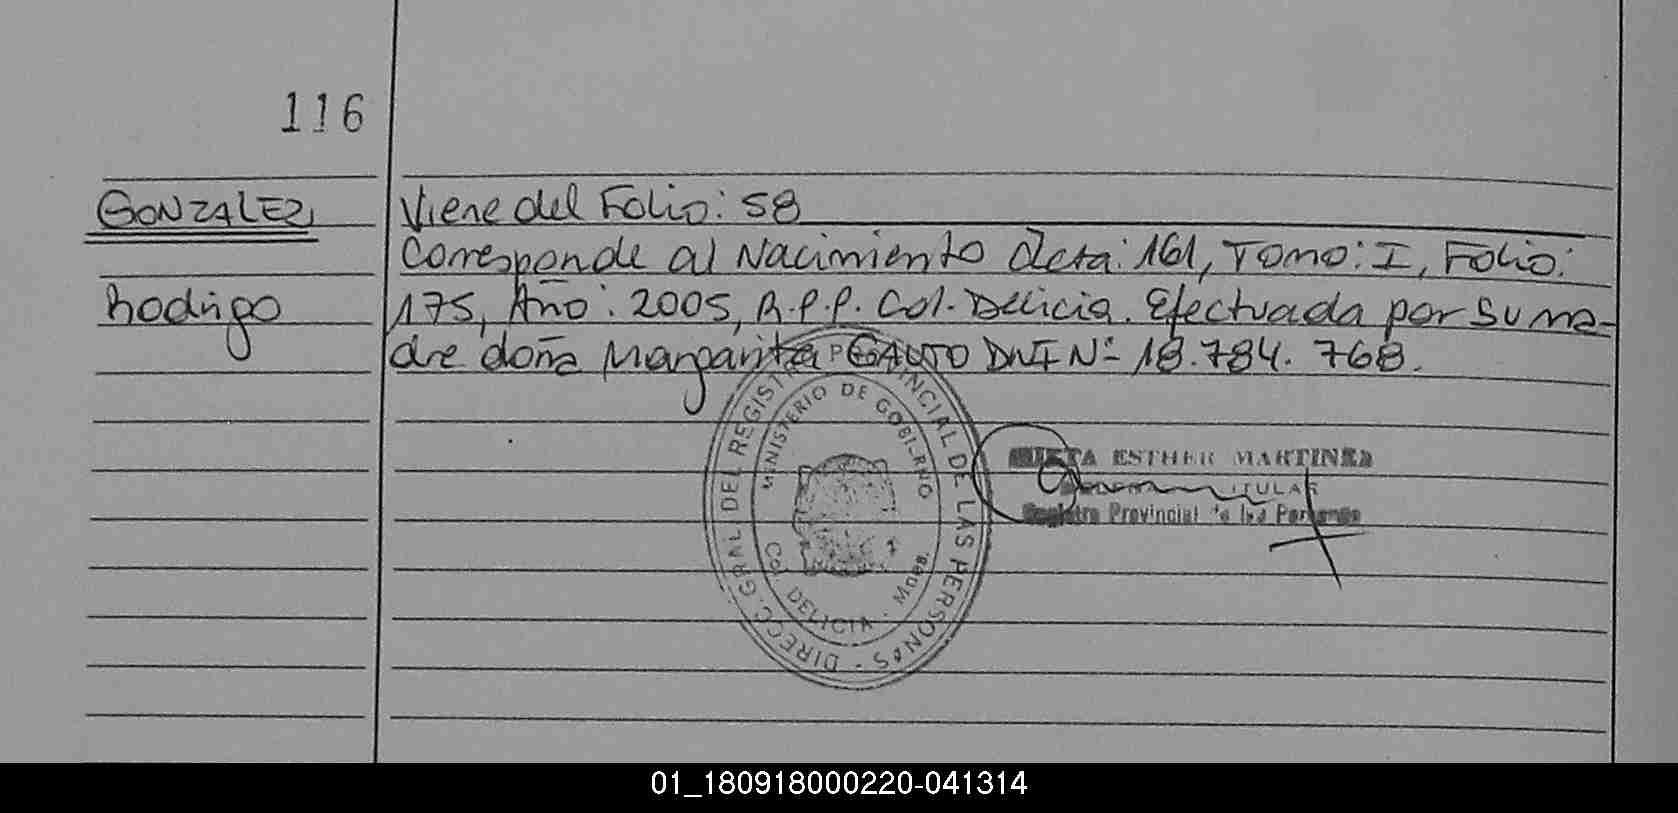 116
GONZALEZ,
Rodrigo
Viene del Folio: 58
Corresponde al Nacimiento Acta: 161, Tomo: I, Folio:
175, Año: 2005, R.P.P. Col. Delicia. Efectuada por su ma-
dre doña Margarita GAUTO DNI Nº 18.784.768.
DIRECC. GRAL DEL REGISTRO PROVINCIAL DE LAS PERSONAS
MINISTERIO DE GOBIERNO
Col. DELICIA - Mnes.
ESTHER MARTINEZ
TITULAR
Registro Provincial de las Personas
01_180918000220-041314